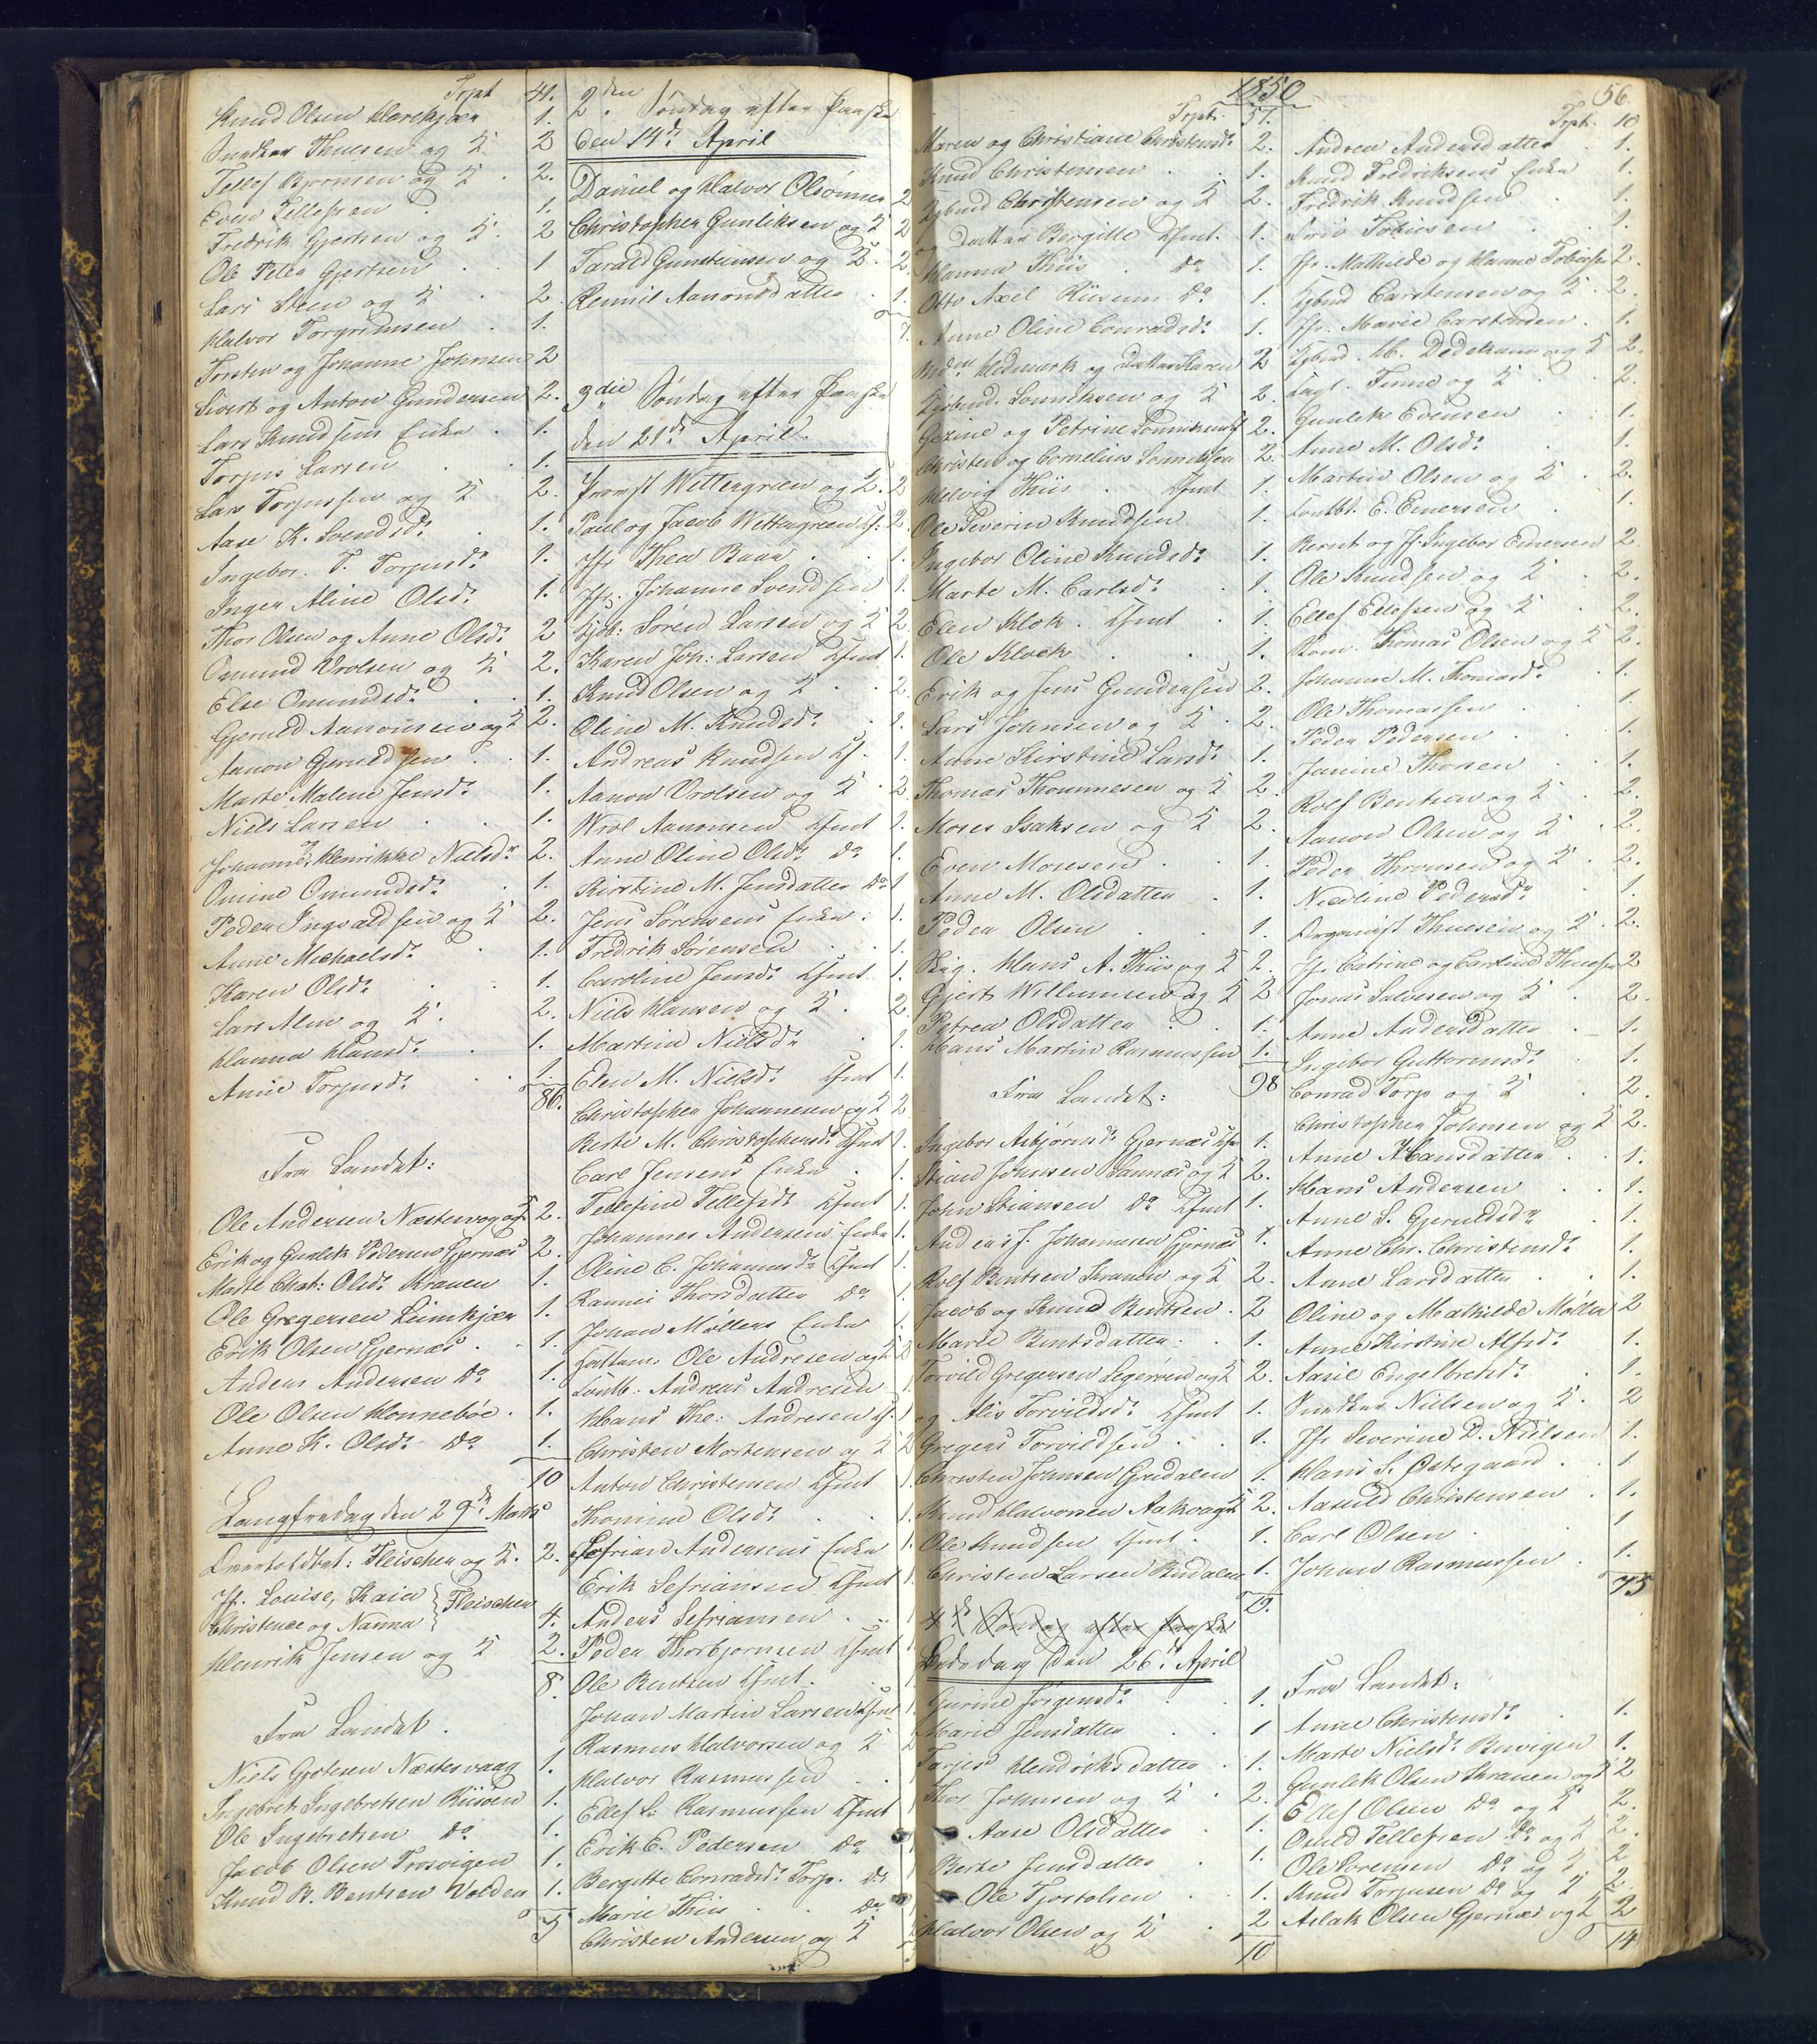 Trpt 41.
Knud Olsen Harekjær 1.
Snedker Thuesen og K 2
Tellef Bjørnsen og K. 2.
Even Tellefsen 1.
Fredrik Gjertsen og K. 2
Ole Peter Gjertsen 1
Lars Steen og K 2.
Halvor Torgrimsen 1.
Torsten og Johanne Johnsen 2
Sivert og Anton Gundersen 2.
Lars Knudsens Enke 1.
Torjus Larsen 1.
Lars Torjussen og K 2.
Aase K. Svendsdr 1.
Ingebor. T. Torjusdr 1.
Inger Aline Olsdr 1.
Thor Olsen og Anne Olsdr 2
Omund Vrolsen og K 2.
Else Omundsdr 1.
Gjeruld Aanonsen og K 2.
Aanon Gjeruldsen 1.
Marte Malene Jensdr 1.
Niels Larsen 1.
Johanne og Henrikke Nielsdr 2.
Omine Omundsdr 1.
Peder Ingvaldsen og K 2.
Anne Michaelsdr 1.
Karen Olsdr 1.
Lars Alm og K. 2.
Hanna Hansdr 1.
Anne Torjusdr 1.
86.
Fra Landet:
Ole Andersen Næstesvog og K. 2.
Erik og Gunlek Pedersen Gjernæs 2.
Marte Chat: Olsdr Kranen 1.
Ole Gregersen Liimkjær 1.
Erik Olsen Gjernæs 1.
Anders Andersen Do 1.
Ole Olsen Honnebøe 1.
Anne K. Olsdr Do 1.
10
Langfredag den 29de Marts
Fleischer og K. 2.
Jfr. Louise, Kaia } Fleischer
Christence og Nanna } 4.
Henrik Jensen og K 2.
8.
Fra Landet.
Niels Gjotesen Næstesvaag 1.
Ingebret Ingebretsen Riisøen 1.
Ole Ingebretsen Do 1.
Jacob Olsen Trosvigen 1.
Knud B. Bentsen Valden 1.
5
2den Søndag efter Paaske
den 14de April
Daniel og Halvor Olsønner 2
Christopher Gunliksen og K 2
Tarald Gunsteinsen og K. 2.
Rennil Aanonsdatter 1.
7.
3die Søndag efter Paaske
den 21de April.
Provst Wettergreen og K. 2
Paul og Jacob Wettergreen Cf: 2.
Jfr Thea Baar 1.
Jfr: Johanne Svendsen 1.
Kjøb: Søren Larsen og K 2.
Karen Joh: Larsen Cfmt 1.
Knud Olsen og K 2.
Oline M. Knudsdr 1.
Andreas Knudsen Cf. 1.
Aanon Vrolsen og K 2.
Wrol Aanonsen Cfmt 1.
Anne Oline Olsdr Do 1.
Kirstine M. Jensdatter Do 1
Jens Sørensens Enke 1.
Fredrik Sørensen 1.
Caroline Jensdr Cfmt. 1.
Niels Hansen og K 2.
Martine Nielsdr 1.
Elen M. Nielsdr Cfmt 1.
Christopher Johannesen og K 2
Berte M. Christophersdr Cfmt 1.
Carl Jensens Enke 1.
Tellefine Tellefsdr Cfmt 1.
Johannes Andersens Enke 1.
Oline C. Johannesdr Cfmt 1.
Rannei Thorsdatter Do 1.
Johan Møllers Enke 1.
Ole Andresen og K 2
Andreas Andresen 1.
Hans The: Andresen Cf. 1
Christen Mortensen og K 2
Anton Christensen Cfmt 1.
Thomine Olsdr 1.
Sefrian Andersens Enke 1.
Erik Sefriansen Cfmt 1.
Anders Sefriansen 1
Peder Thorbjørnsen Cfmt 1
Ole Bentsen Cfmt. 1.
Johan Martin Larsen Cfmt 1.
Rasmus Halvorsen og K 2
Halvor Rasmussen
Ellef L: Rasmussen Cfmt
Erik E. Pedersen Do
Bergitte Conradsdr Torp. Do
Marie Thiis Do
Christen Andersen og K
1850
Trpt. 57.
Maren og Christiane Christensdr 2.
Knud Christensen 1.
Kjbmd Christensen og K 2.
og Datter Bergitte Cfmt. 1.
Hanna Thiis Do 1.
Otto Axel Riisum Do 1.
Anne Oline Conradsdr 1.
Hedmark og Datter Karen 2
Kjøbmd. Sonniksen og K 2.
Gezine og Petrine Sonniksen Cf 2.
Christen og Cornelius Sonniksen 2.
Helvig Thiis Cfmt 1.
Ole Severin Knudsen 1.
Ingebor Oline Knudsdr 1.
Marte M. Carlsdr 1.
Elen Klok. Cfmt 1.
Ole Klock 1.
Erik og Jens Gundersen 2.
Lars Johnsen og K. 2.
Anne Kirstine Larsdr 1.
Thomas Thommesen og K 2.
Moses Isaksen og K 2.
Even Mosesen 1.
Anne M. Olsdatter 1.
Peder Olsen 1.
Hans A. Thiis og K 2.
Gjert Willumsen og K 2
Petrea Olsdatter 1.
Hans Martin Rasmussen 1.
98
Fra Landet:
Ingebor Asbjørnsdr Gjernæs Cfm 1.
Stian Johnsen Sannæs og K 2.
John Stiansen Do Cfmt 1.
Anders J. Johannesen Gjernæs 1.
Rolf Bentsen Kranen og K 2.
Jacob og Knud Bentsen 2
Marie Bentsdatter 1.
Torvild Gregersen Legerven og K 2.
og Alis Torvildsdr Cfmt 1.
Gregers Torvildsen 1.
Christen Johnsen Grødalen 1.
Knud Halvorsen Aakvog og K 2.
Ole Knudsen Cfmt 1.
Christen Larsen Rødalen 1.
19.
4de Søndag efter Paaske
Bededag den 26de April
Gurine Jørgensdr 1.
Marie Jensdatter 1
Tarjer Hendriksdatter 1.
Thor Johnsen og K 2.
Aase Olsdatter 1.
Berte Jensdatter 1.
Ole Tjostolsen 1.
Halvor Olsen og K 2
10
56.
Trpt. 10
Andrea Andersdatter 1.
Knud Fredriksens Enke 1.
Fredrik Knudsen 1.
Tobiesen 1.
Jfr. Mathilde og Hanne Tobiesen 2.
Kjbmd Carstensen og K 2.
Jfr. Marie Carstensen 1.
Kjbmd. M. Dedekam og K 2.
Finne og K 2.
Gunlek Edensen 1.
Anne M. Olsdr 1.
Martin Olsen og K 2.
E. Enersen 1.
Bernt og Jf. Ingebor Enersen 2
Ole Knudsen og K 2.
Ellef Ellefsen og K 2.
Thomas Olsen og K 2.
Johanne M. Thomasdr 1.
Ole Thomassen 1.
Peder Pedersen 1.
Janine Thorsen 1.
Rolf Bentsen og K 2.
Aanon Olsen og K 2.
Peder Thorsen og K 2.
Nicoline Pedersdr 1.
Organist Thuesen og K 2.
Jfr Catrine og Caroline Thuesen 2
Jonas Salvesen og K 2.
Anne Andersdatter 1.
Ingebor Guttormsdr 1.
Conrad Torp og K 2.
Christopher Johnsen og K 2.
Anne Hansdatter 1.
Hans Andersen 1.
Anne S. Gjeruldsdr 1.
Anne Chr. Christensdr 1.
Anne Larsdatter 1.
Oline og Mathilde Møller 2
Anne Kirstine Alfsdr 1.
Aasil Engelbretsdr 1.
Snedker Nielsen og K 2
Jfr Severine D. Nielsen 1.
Hans S. Østegaard 1.
Aanuld Christensen 1.
Carl Olsen 1
Johan Rasmussen 1.
75
Fra Landet:
Anne Christensdr 1.
Marte Nielsdr Buvigen 1.
Gunlek Olsen Kranen og K 2
Ellef Olsen Do og K 2.
Osuld Tellefsen Do og K 2.
Ole Sørensen Do og K 2
Knud Torjusen Do og K 2.
Aslak Olsen Gjernæs og K 2
14